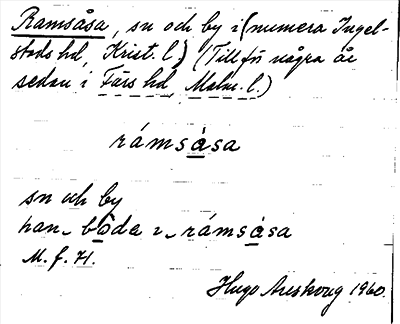 Ramsåsa, sn och by i (numera Ingel-
stads hd, Krist. l.) (Till för några år
sedan i Färs hd, Malm. l.)
rámsása
sn och by
han bóda i rámsása
M. f. 71.
Hugo Areskoug 1960.